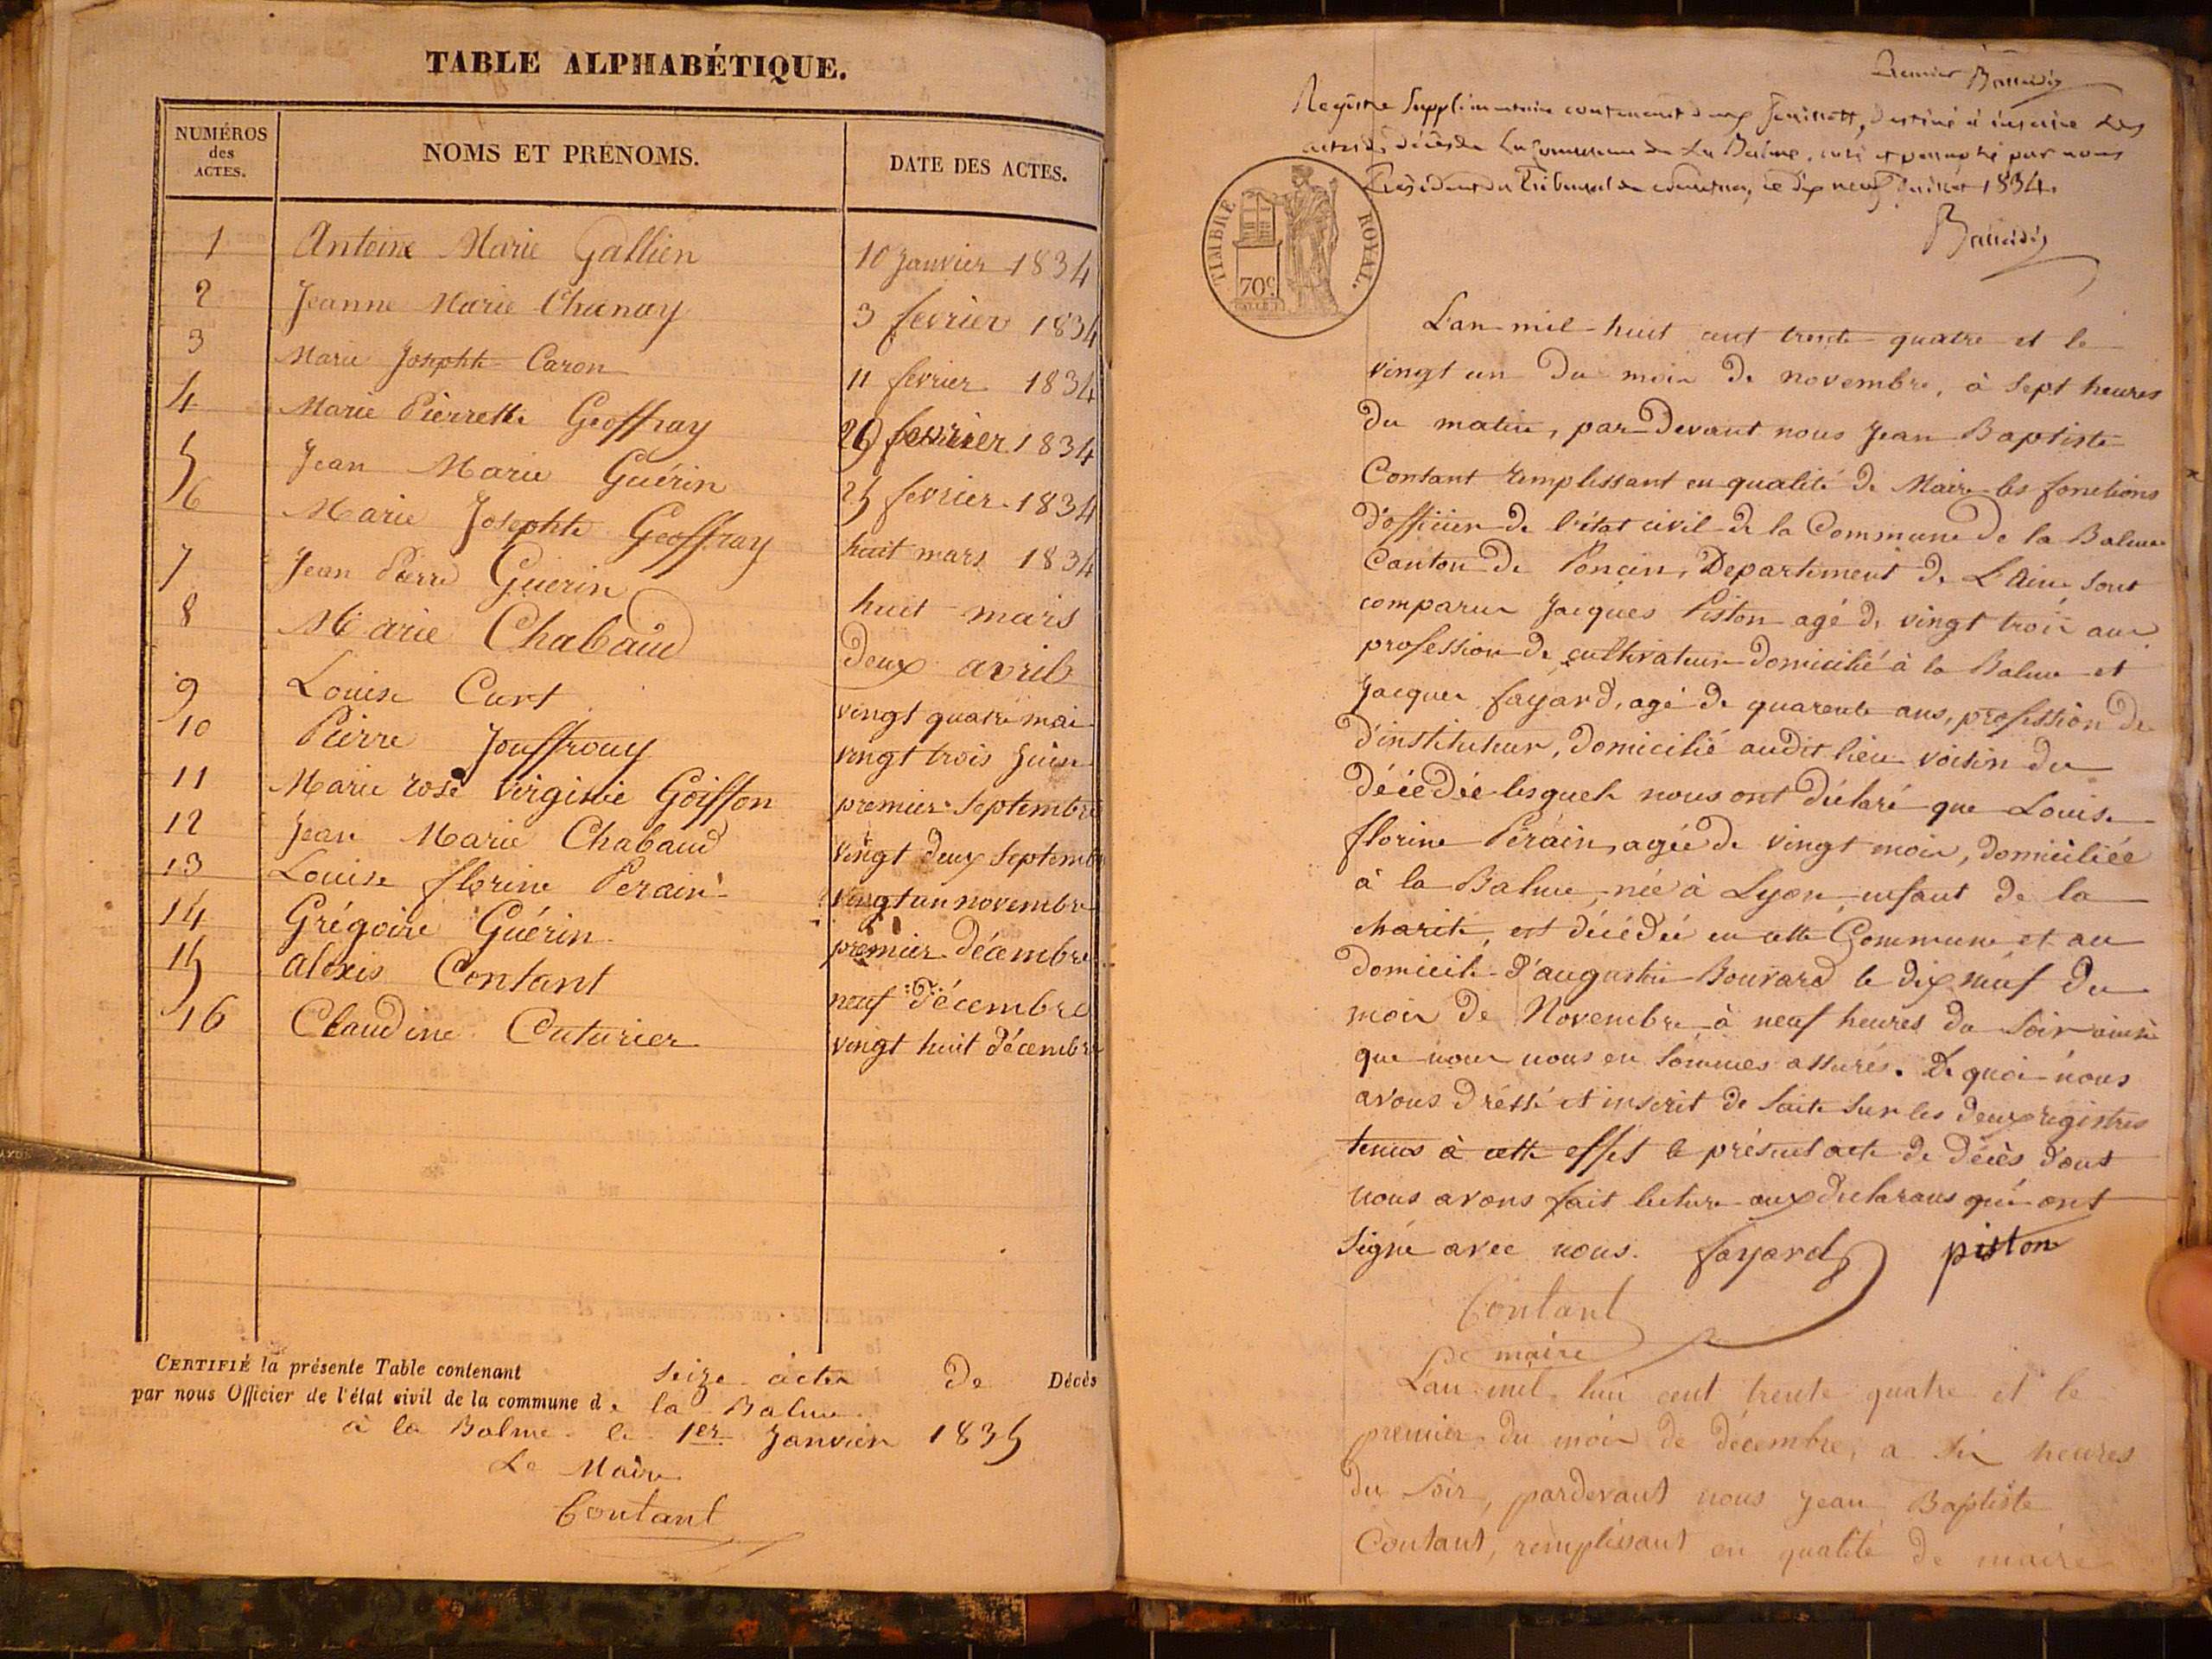 TABLE ALPHABÉTIQUE.
NUMÉROS des ACTES. NOMS ET PRÉNOMS. DATE DES ACTES.
1 Antoine Marie Gallien 10 Janvier 1834
2 Jeanne Marie Chanay 3 fevrier 1834
3 Marie Josephte Caron 11 fevrier 1834
4 Marie Pierrette Geoffray fevrier 1834
5 Jean Marie Guérin 25 fevrier 1834
6 Marie Josephte Geoffray huit mars 1834
7 Jean Pierre Guerin huit mars
8 Marie Chabaud deux avril
9 Louise Curt vingt quatre mai
10 Pierre Jouffrouy vingt trois Juin
11 Marie rose virginie Goiffon premier Septembre
12 Jean Marie Chabaud vingt deux Septembre
13 Louise florine Perain vingt un novembre
14 Grégoire Guérin premier décembre
15 alexis Contant neuf décembre
16 Claudine Couturier vingt huit décembre
CERTIFIÉ la présente Table contenant Seize actes de Décès
par nous Officier de l'état civil de la commune de la Balme
à la Balme le 1er Janvier 1835
Le Maire
Contant
Premier
Registre Supplémentaire contenant deux feuillets, destiné à inscrire les
actes de décès de la Commune de La Balme, coté et paraphé par nous
Président du Tribunal de ce dix neuf Juillet 1834.
TIMBRE ROYAL.
70c
L'an mil huit cent trente quatre et le
vingt un du mois de novembre, à Sept heures
du matin, par Devant nous Jean Baptiste
Contant remplissant en qualité de Maire les fonctions
d'officier de l'état civil de la Commune de la Balme
Canton de Poncin, Departement de L'Ain, sont
comparus Jacques Piston agé de vingt trois ans
profession de cultivateur domicilié à la Balme et
Jacques fayard, agé de quarente ans, profession de
d'instituteur, domicilié audit lieu voisin du
décédée lesquels nous ont déclaré que Louise
florine Perain, agée de vingt mois, domiciliée
à la Balme, née à Lyon, enfant de la
charité, est décédée en cette Commune et au
domicile d'augustin Bouvard le dix neuf du
mois de Novembre à neuf heures du Soir ainsi
que nous nous en Sommes assurés. De quoi nous
avons dréssé et inscrit de Suite Sur les deux registres
tenus à cette effet le présent acte de décès dont
nous avons fait lecture aux declarans qui ont
Signé avec nous. fayard piston
Contant
maire
L'an mil hui cent trente quatre et le
premier du mois de decembre, a Six heures
du Soir, pardevant nous Jean Baptiste
Contant, remplissant en qualité de maire